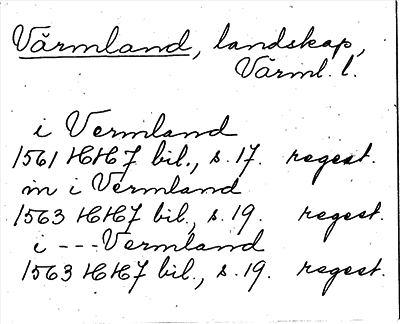 Värmland, landskap,
Värml. l.
i Vermland
1561 HH7 bil., s. 17. regest.
m i Vermland
1563 HH7 bil., s. 19. regest.
i --- Vermland
1563 HH7 bil., s. 19. regest.